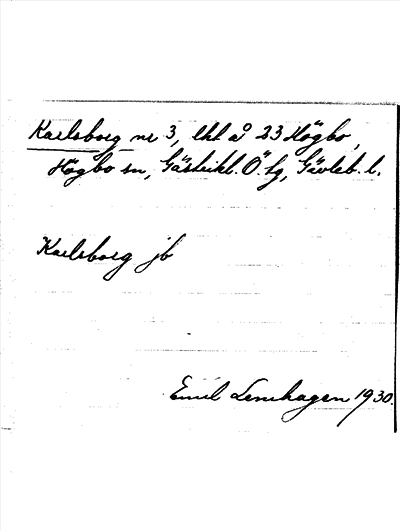 Karlsborg nr 3, lht å 23 Högbo,
Högbo sn, Gästrikl. Ö. tg, Gävleb. l.
Karlsborg jb
Emil Lenhagen 1930.